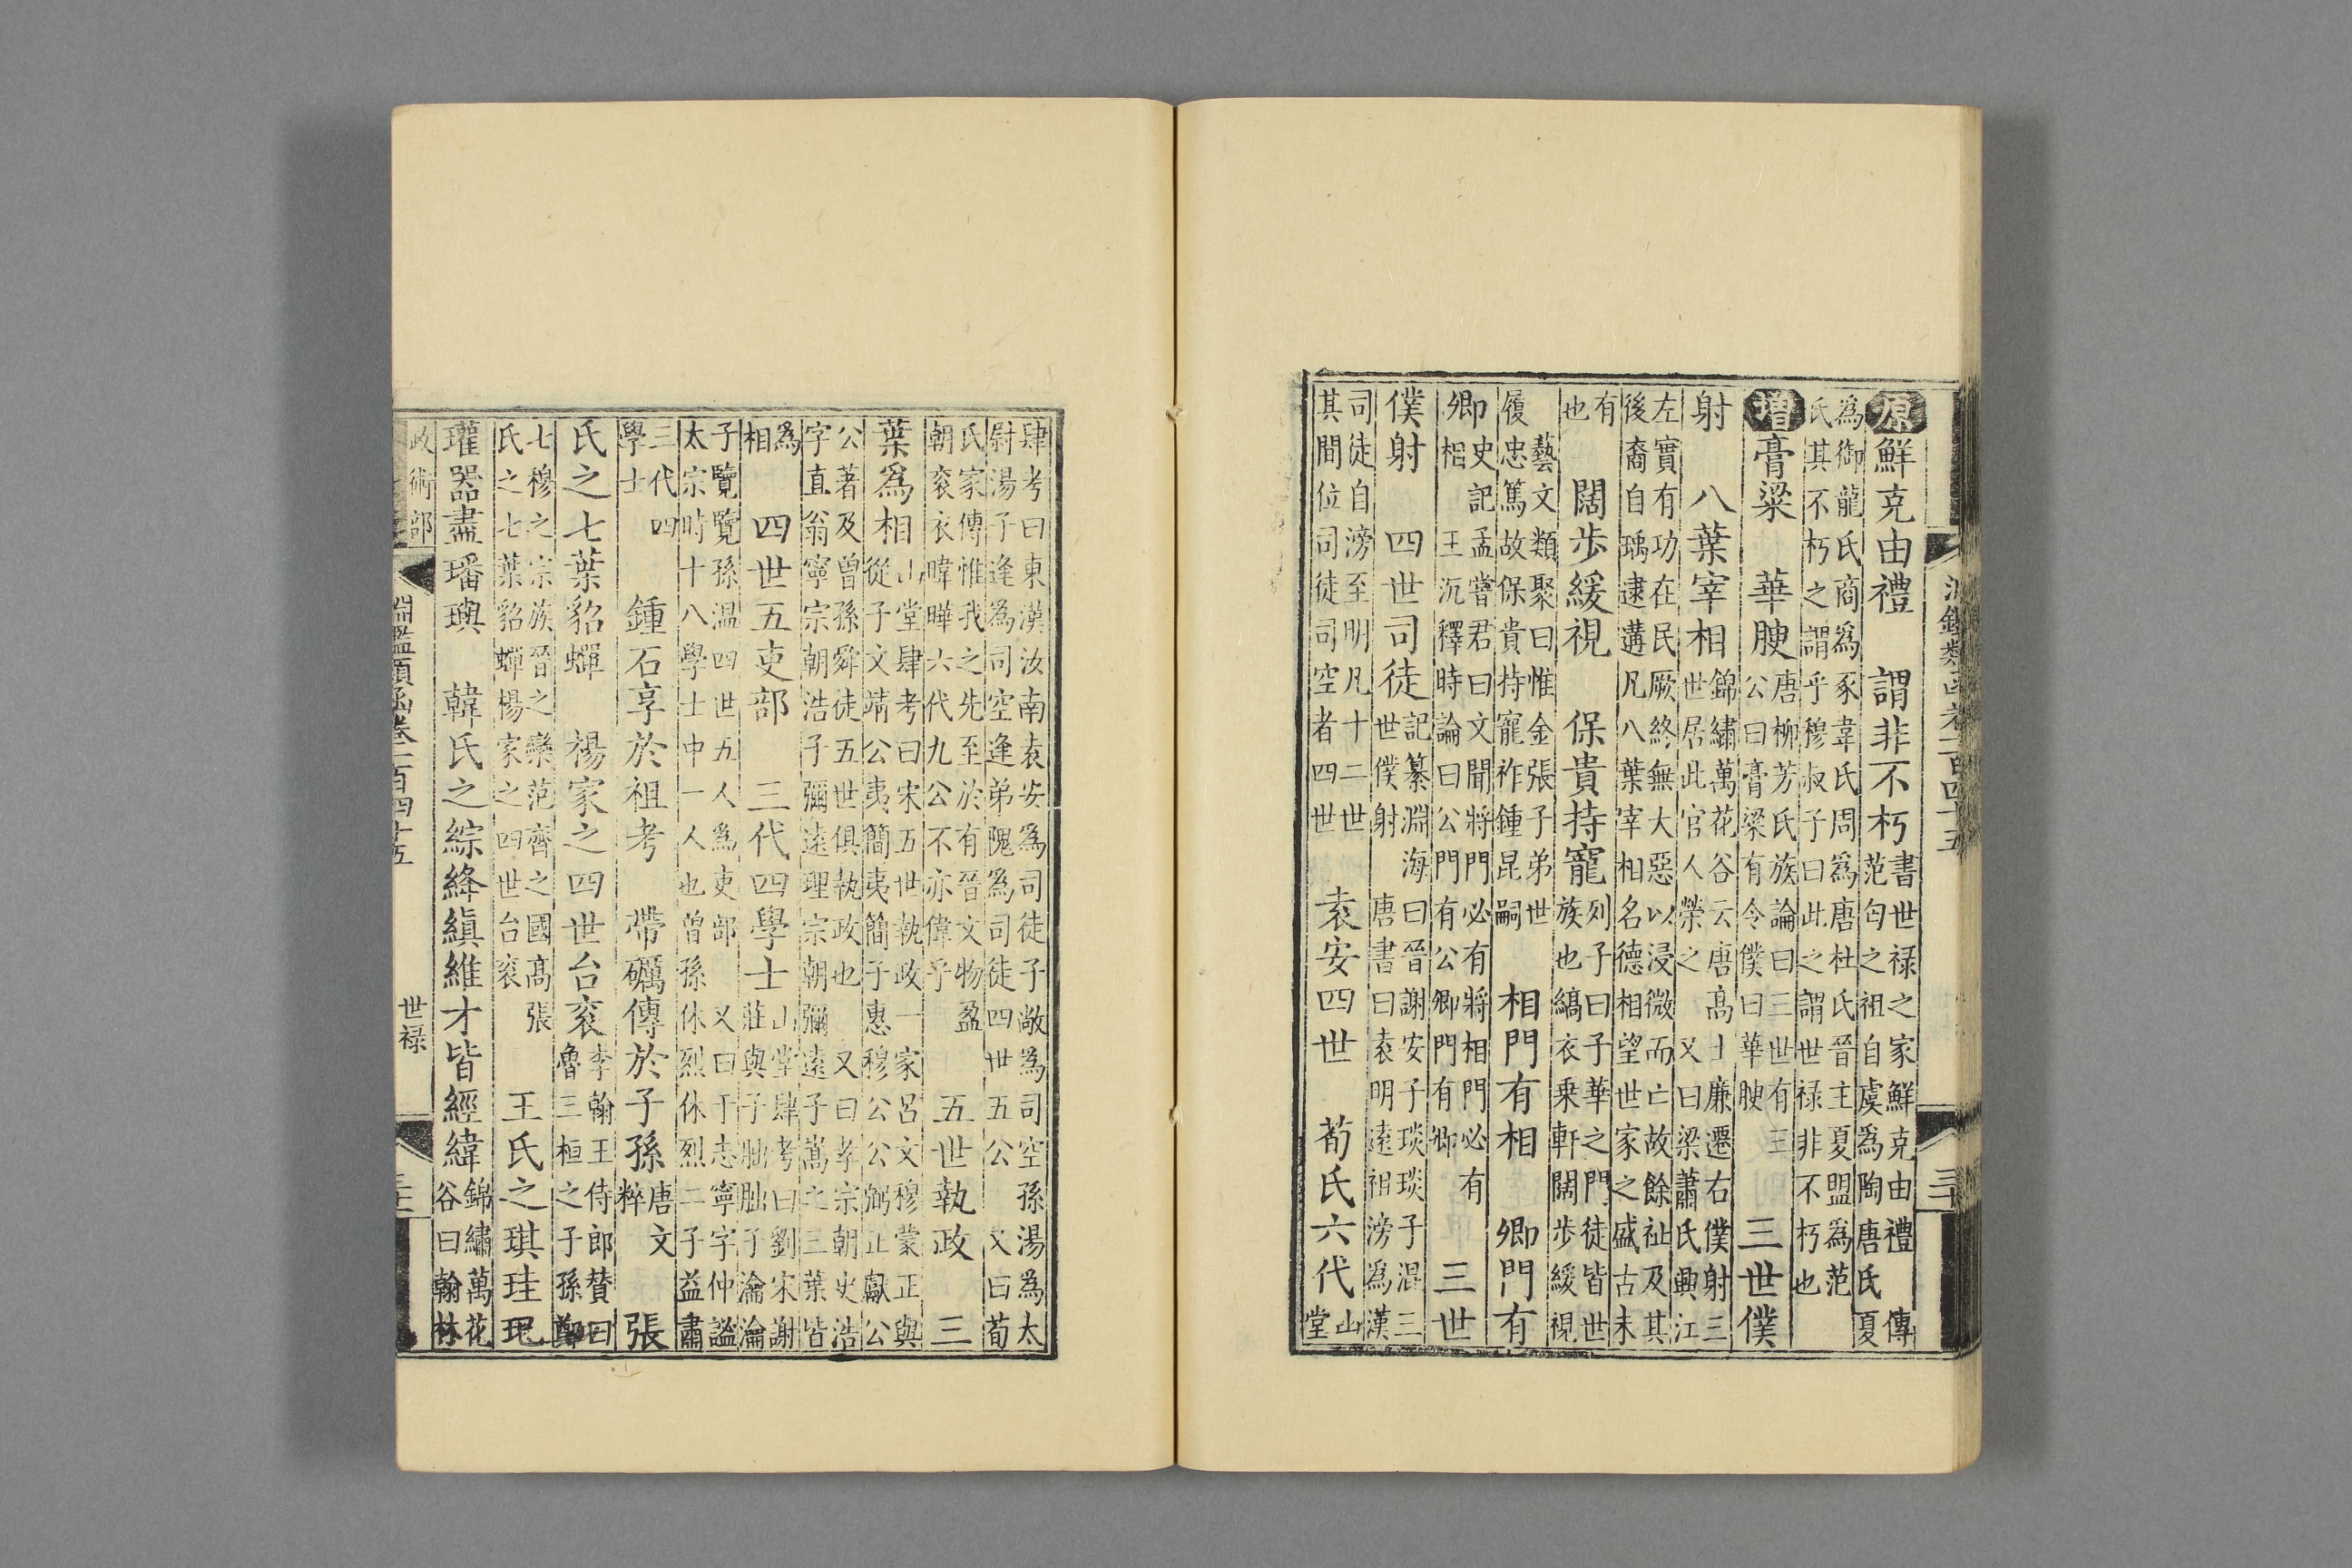 淵鑑類函卷一百四十五
原鮮克由禮 謂非不朽 書世禄之家鮮克由禮 傳范匄之祖自虞為陶唐氏夏
為御龍氏商為豕韋氏周為唐杜氏晉主夏盟為范氏其不朽之謂乎穆叔子曰此之謂世禄非不朽也
增膏粱 華腴 唐柳芳氏族論曰三世有三公曰膏粱有令僕曰華腴 三世僕
射 八葉宰相 錦繡萬花谷云唐高士廉遷右僕射三世居此官人榮之 又曰梁蕭氏興江
左實有功在民厥終無大惡以浸微而亡故餘祉及其後裔自瑀逮遘凡八葉宰相名德相望世家之盛古未
有也 闊步緩視 保貴持寵 列子曰子華之門徒皆世族也縞衣乗軒闊步緩視
藝文類聚曰惟金張子弟世履忠篤故保貴持寵祚鍾昆嗣 相門有相 卿門有
卿 史記孟嘗君曰文聞將門必有將相門必有相 王沉釋時論曰公門有公卿門有卿 三世
僕射 四世司徒 記纂淵海曰晉謝安子琰琰子混三世僕射 唐書曰袁明遠祖滂為漢
司徒自滂至明凡十二世其間位司徒司空者四世 袁安四世 荀氏六代 山堂
肆考曰東漢汝南袁安為司徒子敞為司空孫湯為太尉湯子逢為司空逢弟隗為司徒四世五公 又曰荀
氏家傳惟我之先至於有晉文物盈朝衮衣暐曄六代九公不亦偉乎 五世執政 三
葉為相 山堂肆考曰宋五世執政一家呂文穆蒙正與從子文靖公夷簡夷簡子惠穆公公弼正獻公
公著及曾孫舜徒五世俱執政也 又曰孝宗朝史浩字直翁寧宗朝浩子彌遠理宗朝彌遠子嵩之三葉皆
為相 四世五吏部 三代四學士 山堂肆考曰劉宋謝莊與子朏朏子瀹瀹
子覽覽孫溫四世五人為吏部 又曰于志寧字仲謐太宗時十八學士中一人也曾孫休烈休烈二子益肅
三代四學士 鍾石享於祖考 帶礪傳於子孫 唐文粹 張
氏之七葉貂蟬 楊家之四世台衮 李翰王侍郎贊曰魯三桓之子孫鄭
七穆之宗族晉之欒范齊之國高張氏之七葉貂蟬楊家之四世台衮 王氏之琪珪玘
瓘器盡璠璵 韓氏之綜絳縝維才皆經緯 錦繡萬花谷曰翰林
政術部 淵鑑類函卷一百四十五 世禄